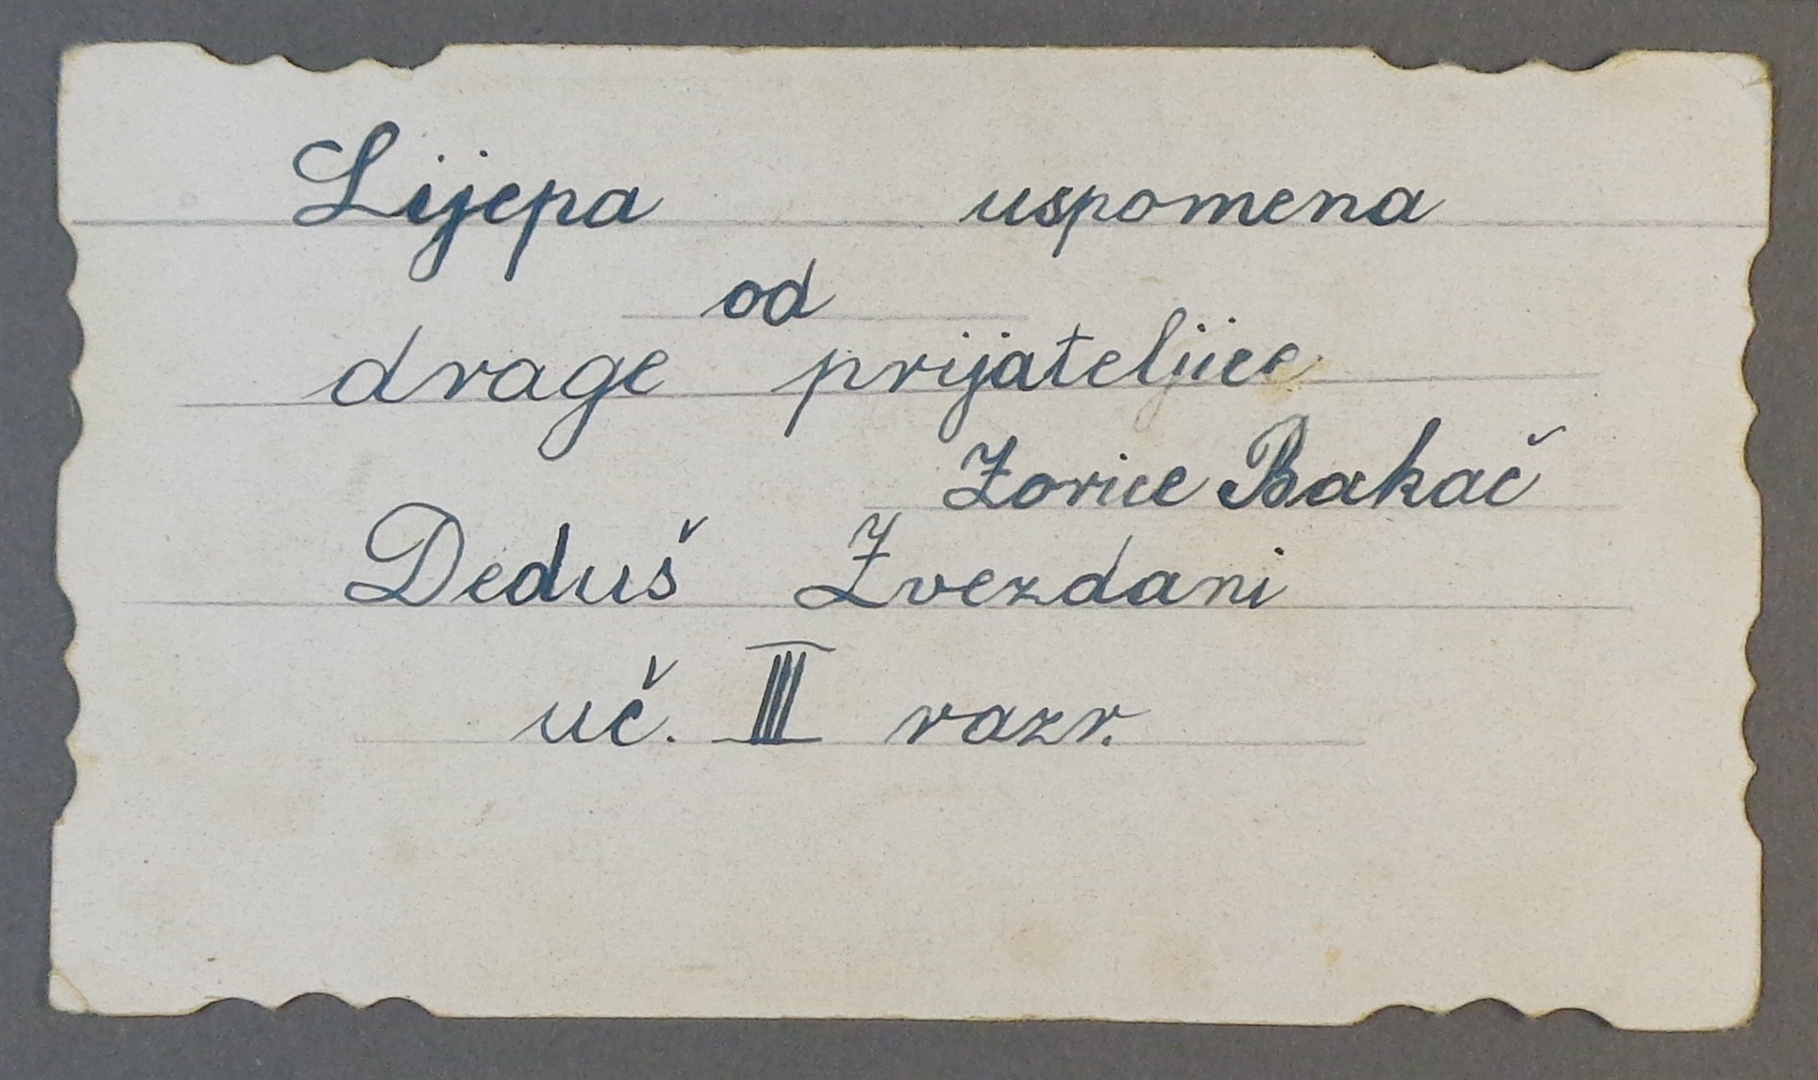 Lijepa uspomena
od
drage prijateljice
Zorice Bakač
Deduš Zvezdani
uč. III razr.